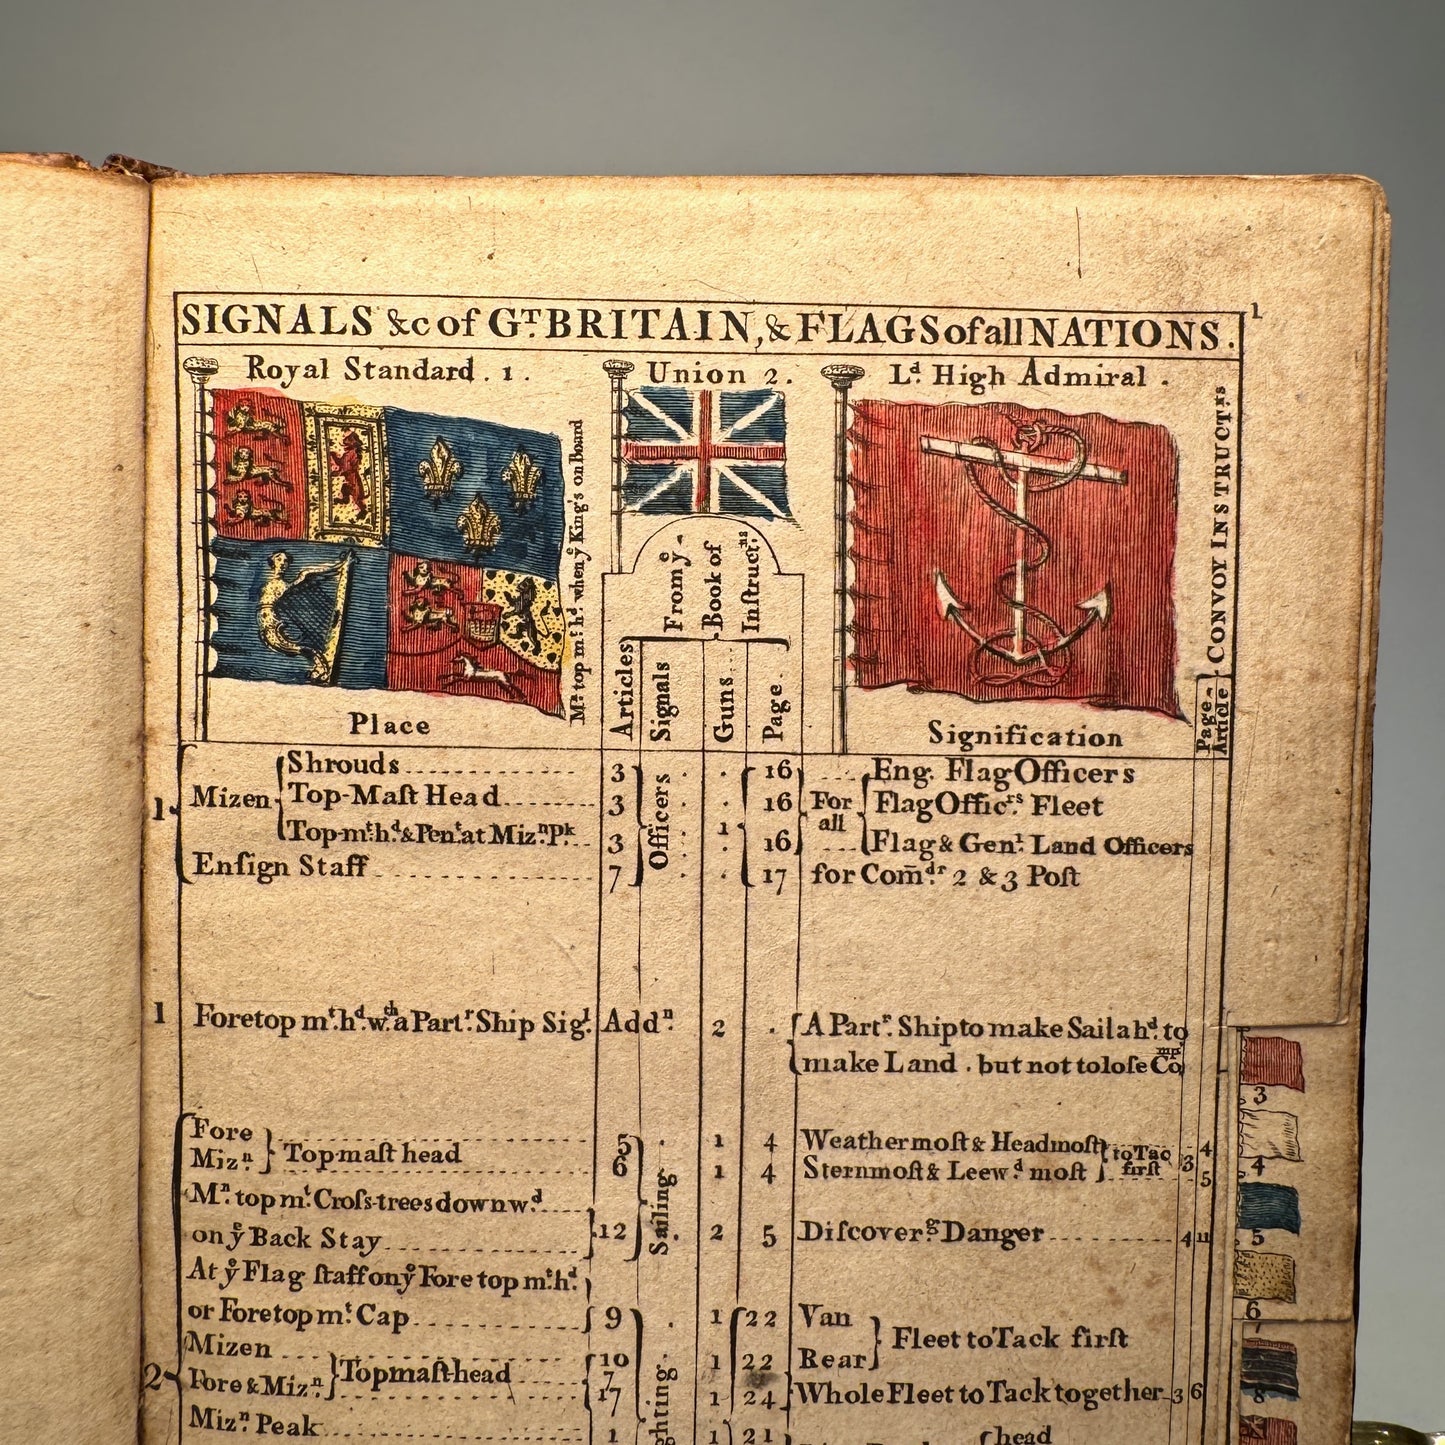 1
SIGNALS &c of G.T BRITAIN, & FLAGS of all NATIONS.
Royal Standard. 1.
Union 2.
L.d High Admiral.
M.n top m.t h.d when ye King's on Board
From ye
Book of
Inſtruct.ns
CONVOY INSTRUCT.rs
Place
Articles
Signals
Guns
Page.
Signification
Page
Article
1
Mizen
Shrouds 3 Officers . 16 For all Eng. Flag Officers
Top-Maſt Head 3 . 16 Flag Offic.rs Fleet
Top-m.t h.d & Pen.t at Miz.n P.k 3 1 . 16 Flag & Gen.l Land Officers
Enſign Staff 7 . 17 for Com̄.dr 2 & 3 Poſt
1 Foretop m.t h.d w.th a Part.r Ship Sig.l Add.n 2 . A Part.r Ship to make Sail ah.d to
make Land. but not to loſe Comp
Fore 5 Sailing 1 4 Weathermoſt & Headmoſt to Tac 3 4
Miz.n Topmaſt head 6 1 4 Sternmoſt & Leew.d moſt firſt 5
M.n top m.t Croſs-trees downw.d
on ye Back Stay 12 2 5 Diſcover.g Danger 4 11
At ye Flag ſtaff on ye Fore top m.t h.d
or Foretop m.t Cap 9 1 22 Van Fleet to Tack firſt
2 Mizen 10 1 22 Rear
Fore & Miz.n Topmaſt head 7 17 1 24 Whole Fleet to Tack together 3 6
Miz.n Peak 1 1 21 head
3
4
5
6
7
8